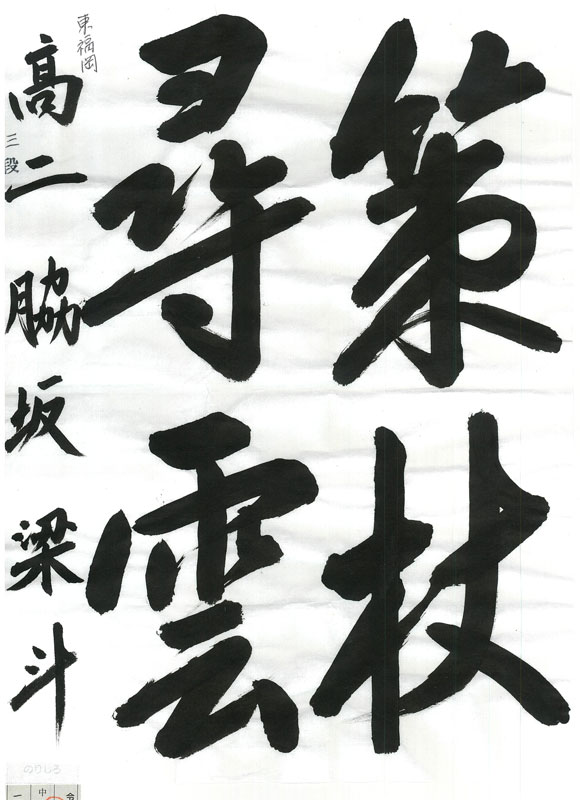 策杖
尋雲
東福岡
高二 脇坂梁斗
三段
のりしろ
一
中
令